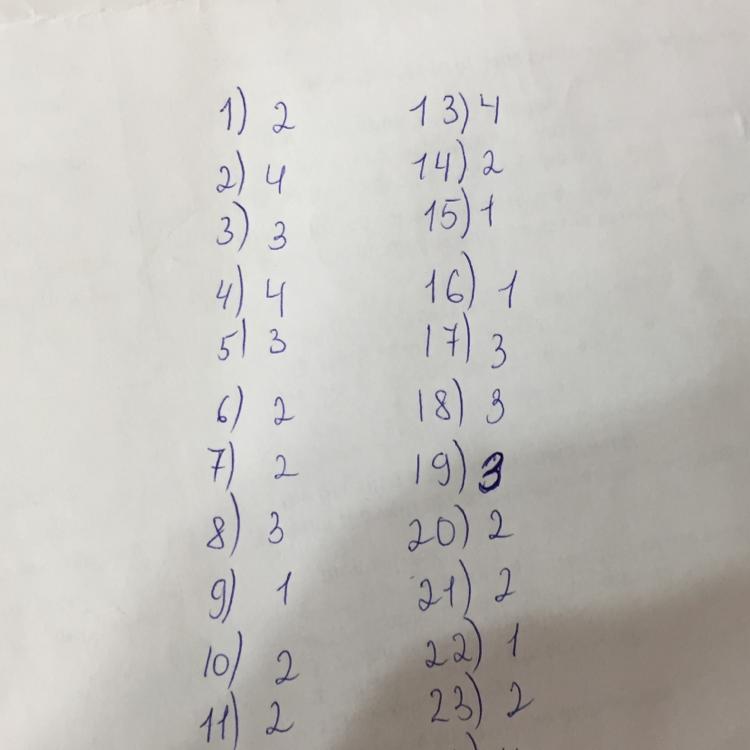 1) 2
2) 4
3) 3
4) 4
5) 3
6) 2
7) 2
8) 3
9) 1
10) 2
11) 2
13) 4
14) 2
15) 1
16) 1
17) 3
18) 3
19) 3
20) 2
21) 2
22) 1
23) 2